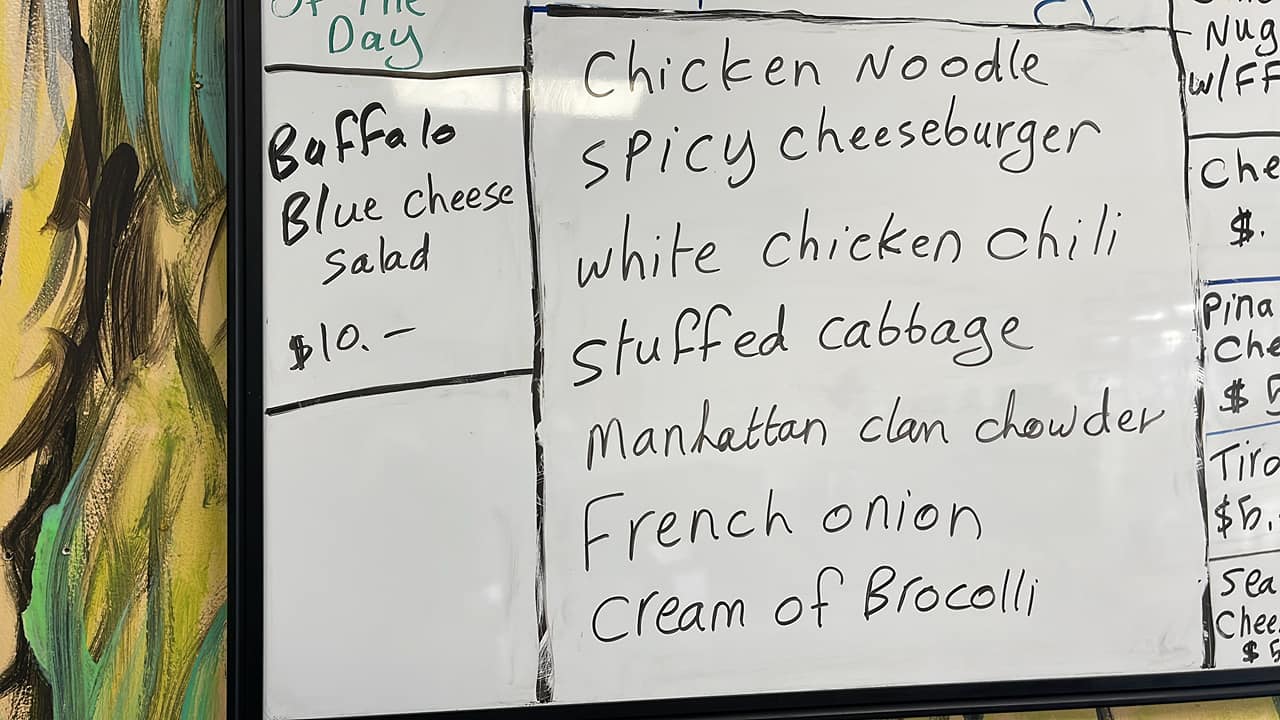 Of The
Day
Buffalo
Blue cheese
salad
$10.-
Chicken Noodle
spicy cheeseburger
white chicken chili
stuffed cabbage
Manhattan clan chowder
French onion
cream of Brocolli
Nug
w/FF
Che
$.
Pina
Che
$ 5
Tiro
$5.
Sea
Chee
$ 5